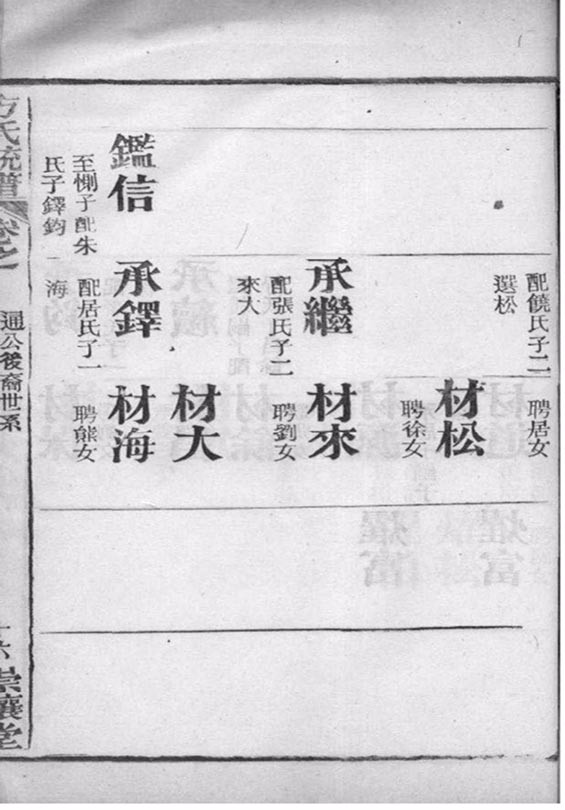 配饒氏子二
選松
聘居女
材松
聘徐女
承繼
配張氏子二
來大
材來
聘劉女
材大
鑑信
至惻子配朱
氏子鐸鈞
承鐸
配居氏子一
海
材海
聘熊女
方氏統譜
卷之
通公後裔世系
十六
崇讓堂